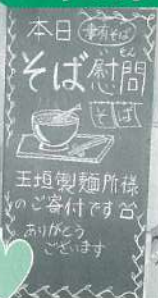 本日
そば慰問
いもん
そば
玉垣製麺所様
のご寄付です
ありがとう
ございます